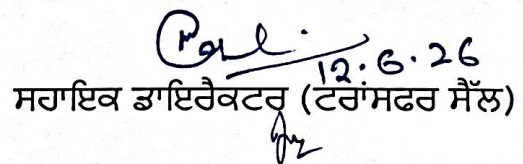 12.6.26
ਸਹਾਇਕ ਡਾਇਰੈਕਟਰ (ਟਰਾਂਸਫਰ ਸੈੱਲ)